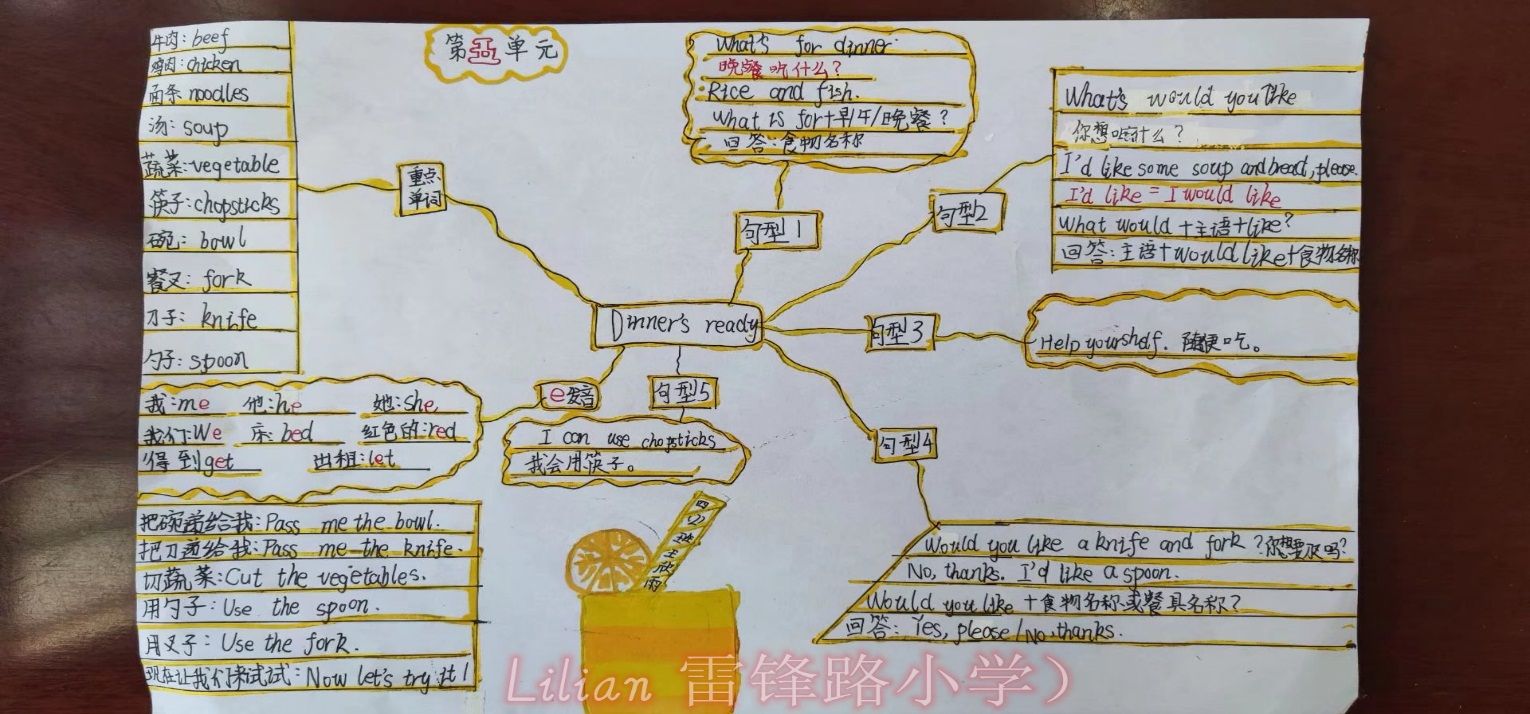 第五单元
牛肉: beef
鸡肉: chicken
面条 noodles
汤: soup
蔬菜: vegetable
筷子: chopsticks
碗: bowl
餐叉: fork
刀子: knife
勺子: spoon
重点
单词
What's for dinner.
晚餐吃什么?
Rice and fish.
What is for+早/午/晚餐?
回答:食物名称
句型1
句型2
What's would you like
你想吃什么?
I'd like some soup and bread, please.
I'd like = I would like
What would +主语+like?
回答:主语+would like+食物名称
Dinner's ready
句型3
Help yourshelf. 随便吃。
e发音
我:me 他:he 她:she
我们:We 床: bed 红色的:red
得到get 出租:let
句型5
I can use chopsticks
我会用筷子。
句型4
Would you like a knife and fork?你想要刀叉吗?
No, thanks. I'd like a spoon.
Would you like +食物名称或餐具名称?
回答: Yes, please/No, thanks.
把碗递给我:Pass me the bowl.
把刀递给我:Pass me the knife.
切蔬菜:Cut the vegetables.
用勺子: Use the spoon.
用叉子: Use the fork.
现在让我们来试试:Now let's try it!
王欣雨
Lilian 雷锋路小学)